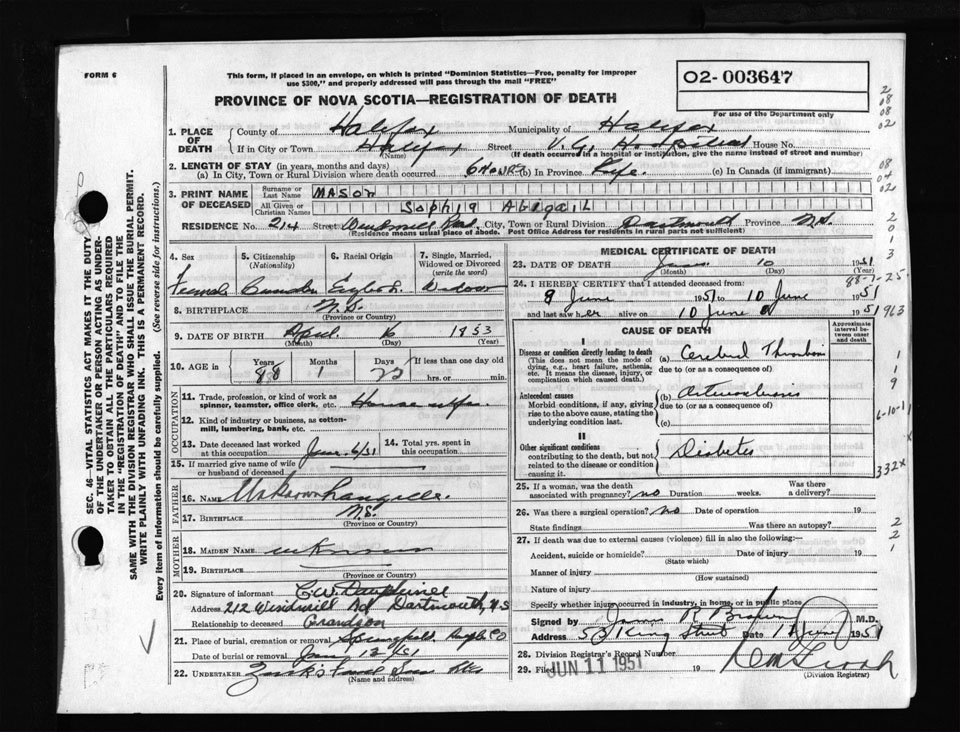 FORM 6
This form, if placed in an envelope, on which is printed "Dominion Statistics—Free, penalty for improper
use $300," and properly addressed will pass through the mail "FREE"
02-003647
For use of the Department only
PROVINCE OF NOVA SCOTIA—REGISTRATION OF DEATH
1. PLACE OF DEATH
County of Halifax Municipality of Halifax
If in City or Town Halifax Street V.G. Hospital House No.
(Name) (If death occurred in a hospital or institution, give the name instead of street and number)
2. LENGTH OF STAY (in years, months and days)
(a) In City, Town or Rural Division where death occurred 6 HOURS (b) In Province Life. (c) In Canada (if immigrant)
3. PRINT NAME OF DECEASED
Surname or Last Name MASON
All Given or Christian Names Sophia AbigaiL
RESIDENCE No. 214 Street Windmill Road, City, Town or Rural Division Dartmouth Province N.S.
(Residence means usual place of abode. Post Office Address for residents in rural parts not sufficient)
4. Sex
5. Citizenship (Nationality)
6. Racial Origin
7. Single, Married, Widowed or Divorced (write the word)
Female English Widow
8. BIRTHPLACE N.S.
(Province or Country)
9. DATE OF BIRTH April 16 1853
(Month) (Day) (Year)
10. AGE in
Years Months Days If less than one day old
88 1 hrs. or min.
OCCUPATION
11. Trade, profession, or kind of work as spinner, teamster, office clerk, etc. House wife
12. Kind of industry or business, as cotton-mill, lumbering, bank, etc.
13. Date deceased last worked at this occupation
14. Total yrs. spent in this occupation
15. If married give name of wife or husband of deceased
FATHER
16. NAME Unknown Langille.
17. BIRTHPLACE N.S.
(Province or Country)
MOTHER
18. MAIDEN NAME unknown
19. BIRTHPLACE
(Province or Country)
20. Signature of informant C.W. Dauphinee
Address 212 Windmill Rd Dartmouth, N.S
Relationship to deceased Grandson
21. Place of burial, cremation or removal
Date of burial or removal
22. UNDERTAKER
(Name and address)
MEDICAL CERTIFICATE OF DEATH
23. DATE OF DEATH June 10 1951
(Month) (Day) (Year)
88-7-25
24. I HEREBY CERTIFY that I attended deceased from:
9 June 1951 to 10 June 1951
and last saw her alive on 10 June 1951
963
CAUSE OF DEATH
Approximate interval between onset and death
I
Disease or condition directly leading to death
(This does not mean the mode of dying, e.g., heart failure, asthenia, etc. It means the disease, injury, or complication which caused death.)
(a) Cerebral Thrombosis
due to (or as a consequence of)
Antecedent causes
Morbid conditions, if any, giving rise to the above cause, stating the underlying condition last.
(b) Arteriosclerosis
due to (or as a consequence of)
(c)
II
Other significant conditions
contributing to the death, but not related to the disease or condition causing it.
Diabetes
332X
25. If a woman, was the death associated with pregnancy? no Duration weeks. Was there a delivery?
26. Was there a surgical operation? no Date of operation 19
State findings Was there an autopsy?
27. If death was due to external causes (violence) fill in also the following:—
Accident, suicide or homicide? Date of injury 19
(State which)
Manner of injury
(How sustained)
Nature of injury
Specify whether injury occurred in industry, in home, or in public place
Signed by James R M.D.
Address King Street Date 11 June 1951
28. Division Registrar's Record Number
29. Filed JUN 11 1951 19
(Division Registrar)
SEC. 46—VITAL STATISTICS ACT MAKES IT THE DUTY
OF THE UNDERTAKER OR PERSON ACTING AS UNDER-
TAKER TO OBTAIN ALL THE PARTICULARS REQUIRED
IN THE "REGISTRATION OF DEATH" AND TO FILE THE
SAME WITH THE DIVISION REGISTRAR WHO SHALL ISSUE THE BURIAL PERMIT.
WRITE PLAINLY WITH UNFADING INK. THIS IS A PERMANENT RECORD.
Every item of information should be carefully supplied. (See reverse side for instructions.)